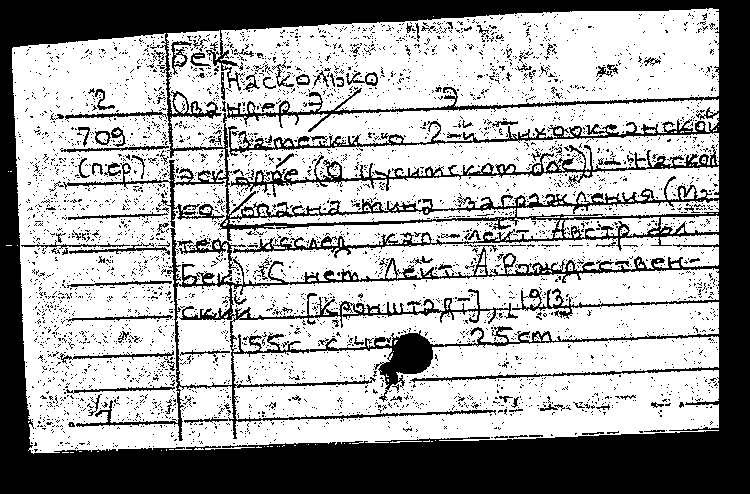 Бек
Насколько
2 Овандер, Э Э
709 [Заметки о 2-й Тихоокеанской
(пер) эскадре (О Цусимском бое)] – Наскол
ко опасна мина заграждения (Ма-
тем. исслед. кап.-лейт. Австр. фл.
Бек). С нем. Лейт. А. Рождествен-
ский. [Кронштадт], 1913.
155 с. с чер 25 cm.
4